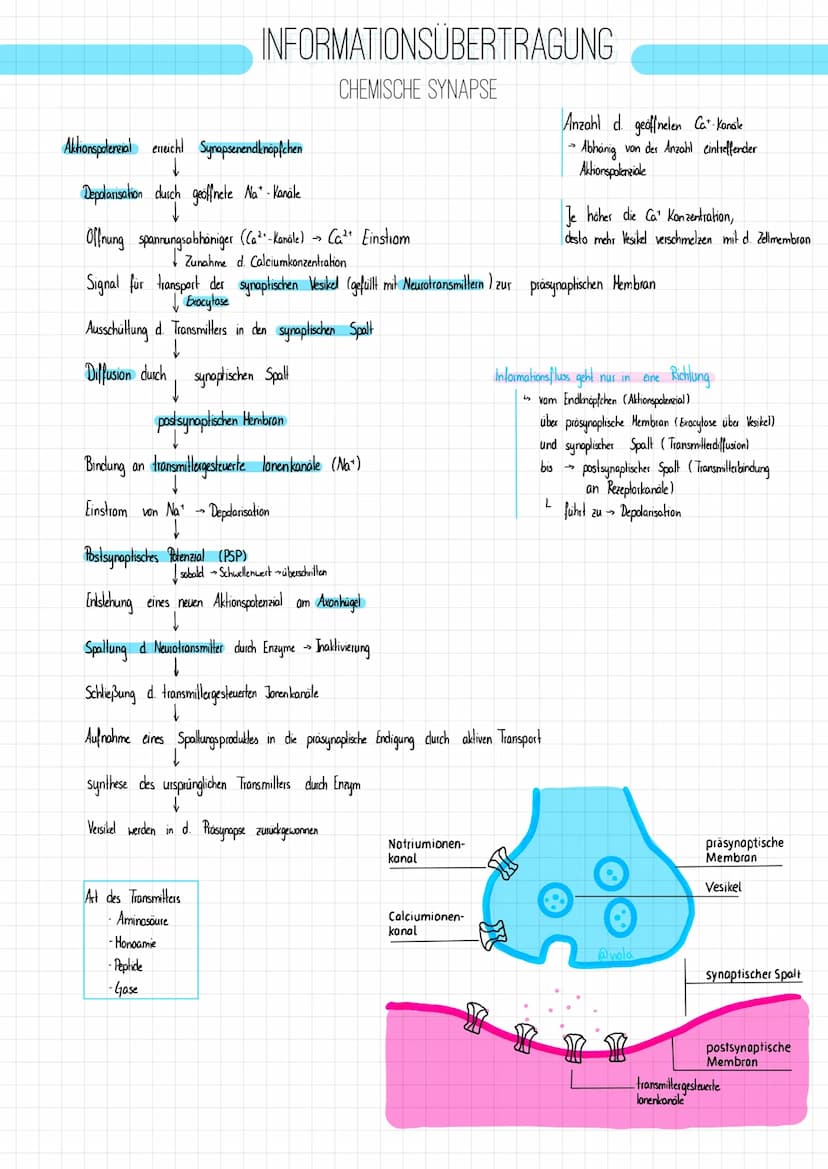 INFORMATIONSÜBERTRAGUNG
CHEMISCHE SYNAPSE
Aktionspotenzial erreicht Synapsenendknöpfchen
↓
Depolarisation durch geöffnete Na⁺-Kanäle
↓
Öffnung spannungsabhäniger (Ca²⁺-Kanäle) → Ca²⁺ Einstrom
↓ Zunahme d. Calciumkonzentration
Signal für Transport der synaptischen Vesikel (gefüllt mit Neurotransmittern) zur präsynaptischen Membran
↓ Exocytose
Ausschüttung d. Transmitters in den synaptischen Spalt
↓
Diffusion durch synaptischen Spalt
↓
postsynaptischen Membran
↓
Bindung an transmittergesteuerte Ionenkanäle (Na⁺)
↓
Einstrom von Na⁺ → Depolarisation
↓
Postsynaptisches Potenzial (PSP)
↓ sobald → Schwellenwert → überschritten
Entstehung eines neuen Aktionspotenzial am Axonhügel
↓
Spaltung d Neurotransmitter durch Enzyme → Inaktivierung
↓
Schließung d. transmittergesteuerten Jonenkanäle
↓
Aufnahme eines Spaltungsproduktes in die präsynaptische Endigung durch aktiven Transport
↓
synthese des ursprünglichen Transmitters durch Enzym
↓
Versikel werden in d. Präsynapse zurückgewonnen
Art des Transmitters
· Aminosäure
· Monoamie
· Peptide
· Gase
Anzahl d. geöffneten Ca⁺-Kanäle
→ Abhänig von der Anzahl eintreffender
Aktionspotenziale
Je höher die Ca⁺ Konzentration,
desto mehr Vesikel verschmelzen mit d. Zellmembran
Informationsfluss geht nur in eine Richtung
↳ vom Endknöpfchen (Aktionspotenzial)
über präsynaptische Membran (Exocytose über Vesikel)
und synaptischer Spalt (Transmitterdiffusion)
bis → postsynaptischer Spalt (Transmitterbindung
an Rezeptorkanäle)
└ führt zu → Depolarisation
Natriumionen-
kanal
Calciumionen-
kanal
präsynaptische
Membran
Vesikel
@viola
synaptischer Spalt
postsynaptische
Membran
transmittergesteuerte
Ionenkanäle